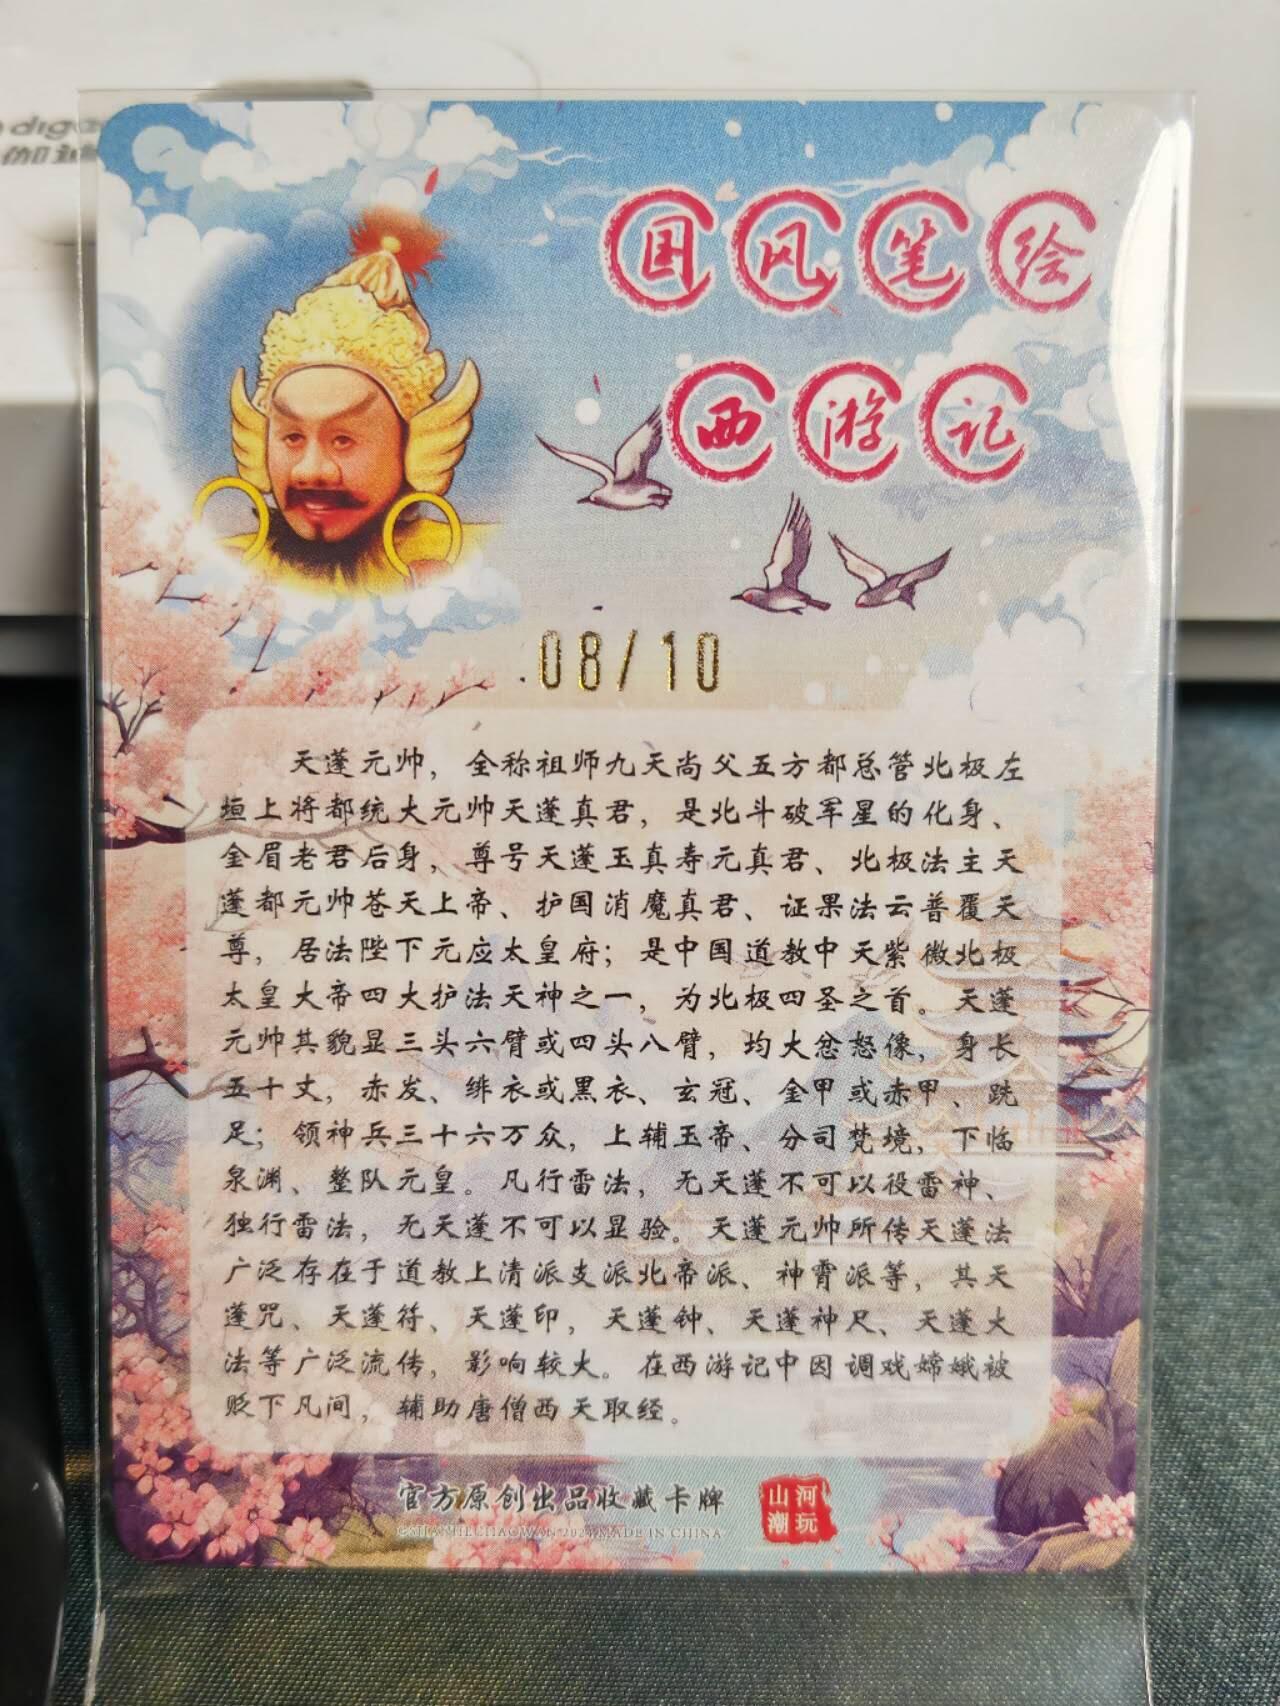 国风笔绘
西游记
08/10
天蓬元帅，全称祖师九天尚父五方都总管北极左
垣上将都统大元帅天蓬真君，是北斗破军星的化身、
金眉老君后身，尊号天蓬玉真寿元真君、北极法主天
蓬都元帅苍天上帝、护国消魔真君、证果法云普覆天
尊，居法陛下元应太皇府；是中国道教中天紫微北极
太皇大帝四大护法天神之一，为北极四圣之首。天蓬
元帅其貌显三头六臂或四头八臂，均大忿怒像，身长
五十丈，赤发、绯衣或黑衣、玄冠、金甲或赤甲、跣
足；领神兵三十六万众，上辅玉帝、分司梵境，下临
泉渊、整队元皇。凡行雷法，无天蓬不可以役雷神、
独行雷法，无天蓬不可以显验。天蓬元帅所传天蓬法
广泛存在于道教上清派支派北帝派、神霄派等，其天
蓬咒、天蓬符、天蓬印，天蓬钟、天蓬神尺、天蓬火
法等广泛流传，影响较大。在西游记中因调戏嫦娥被
贬下凡间，辅助唐僧西天取经。
官方原创出品收藏卡牌
©SHANHECHAOWAN 2024 MADE IN CHINA
山河
潮玩